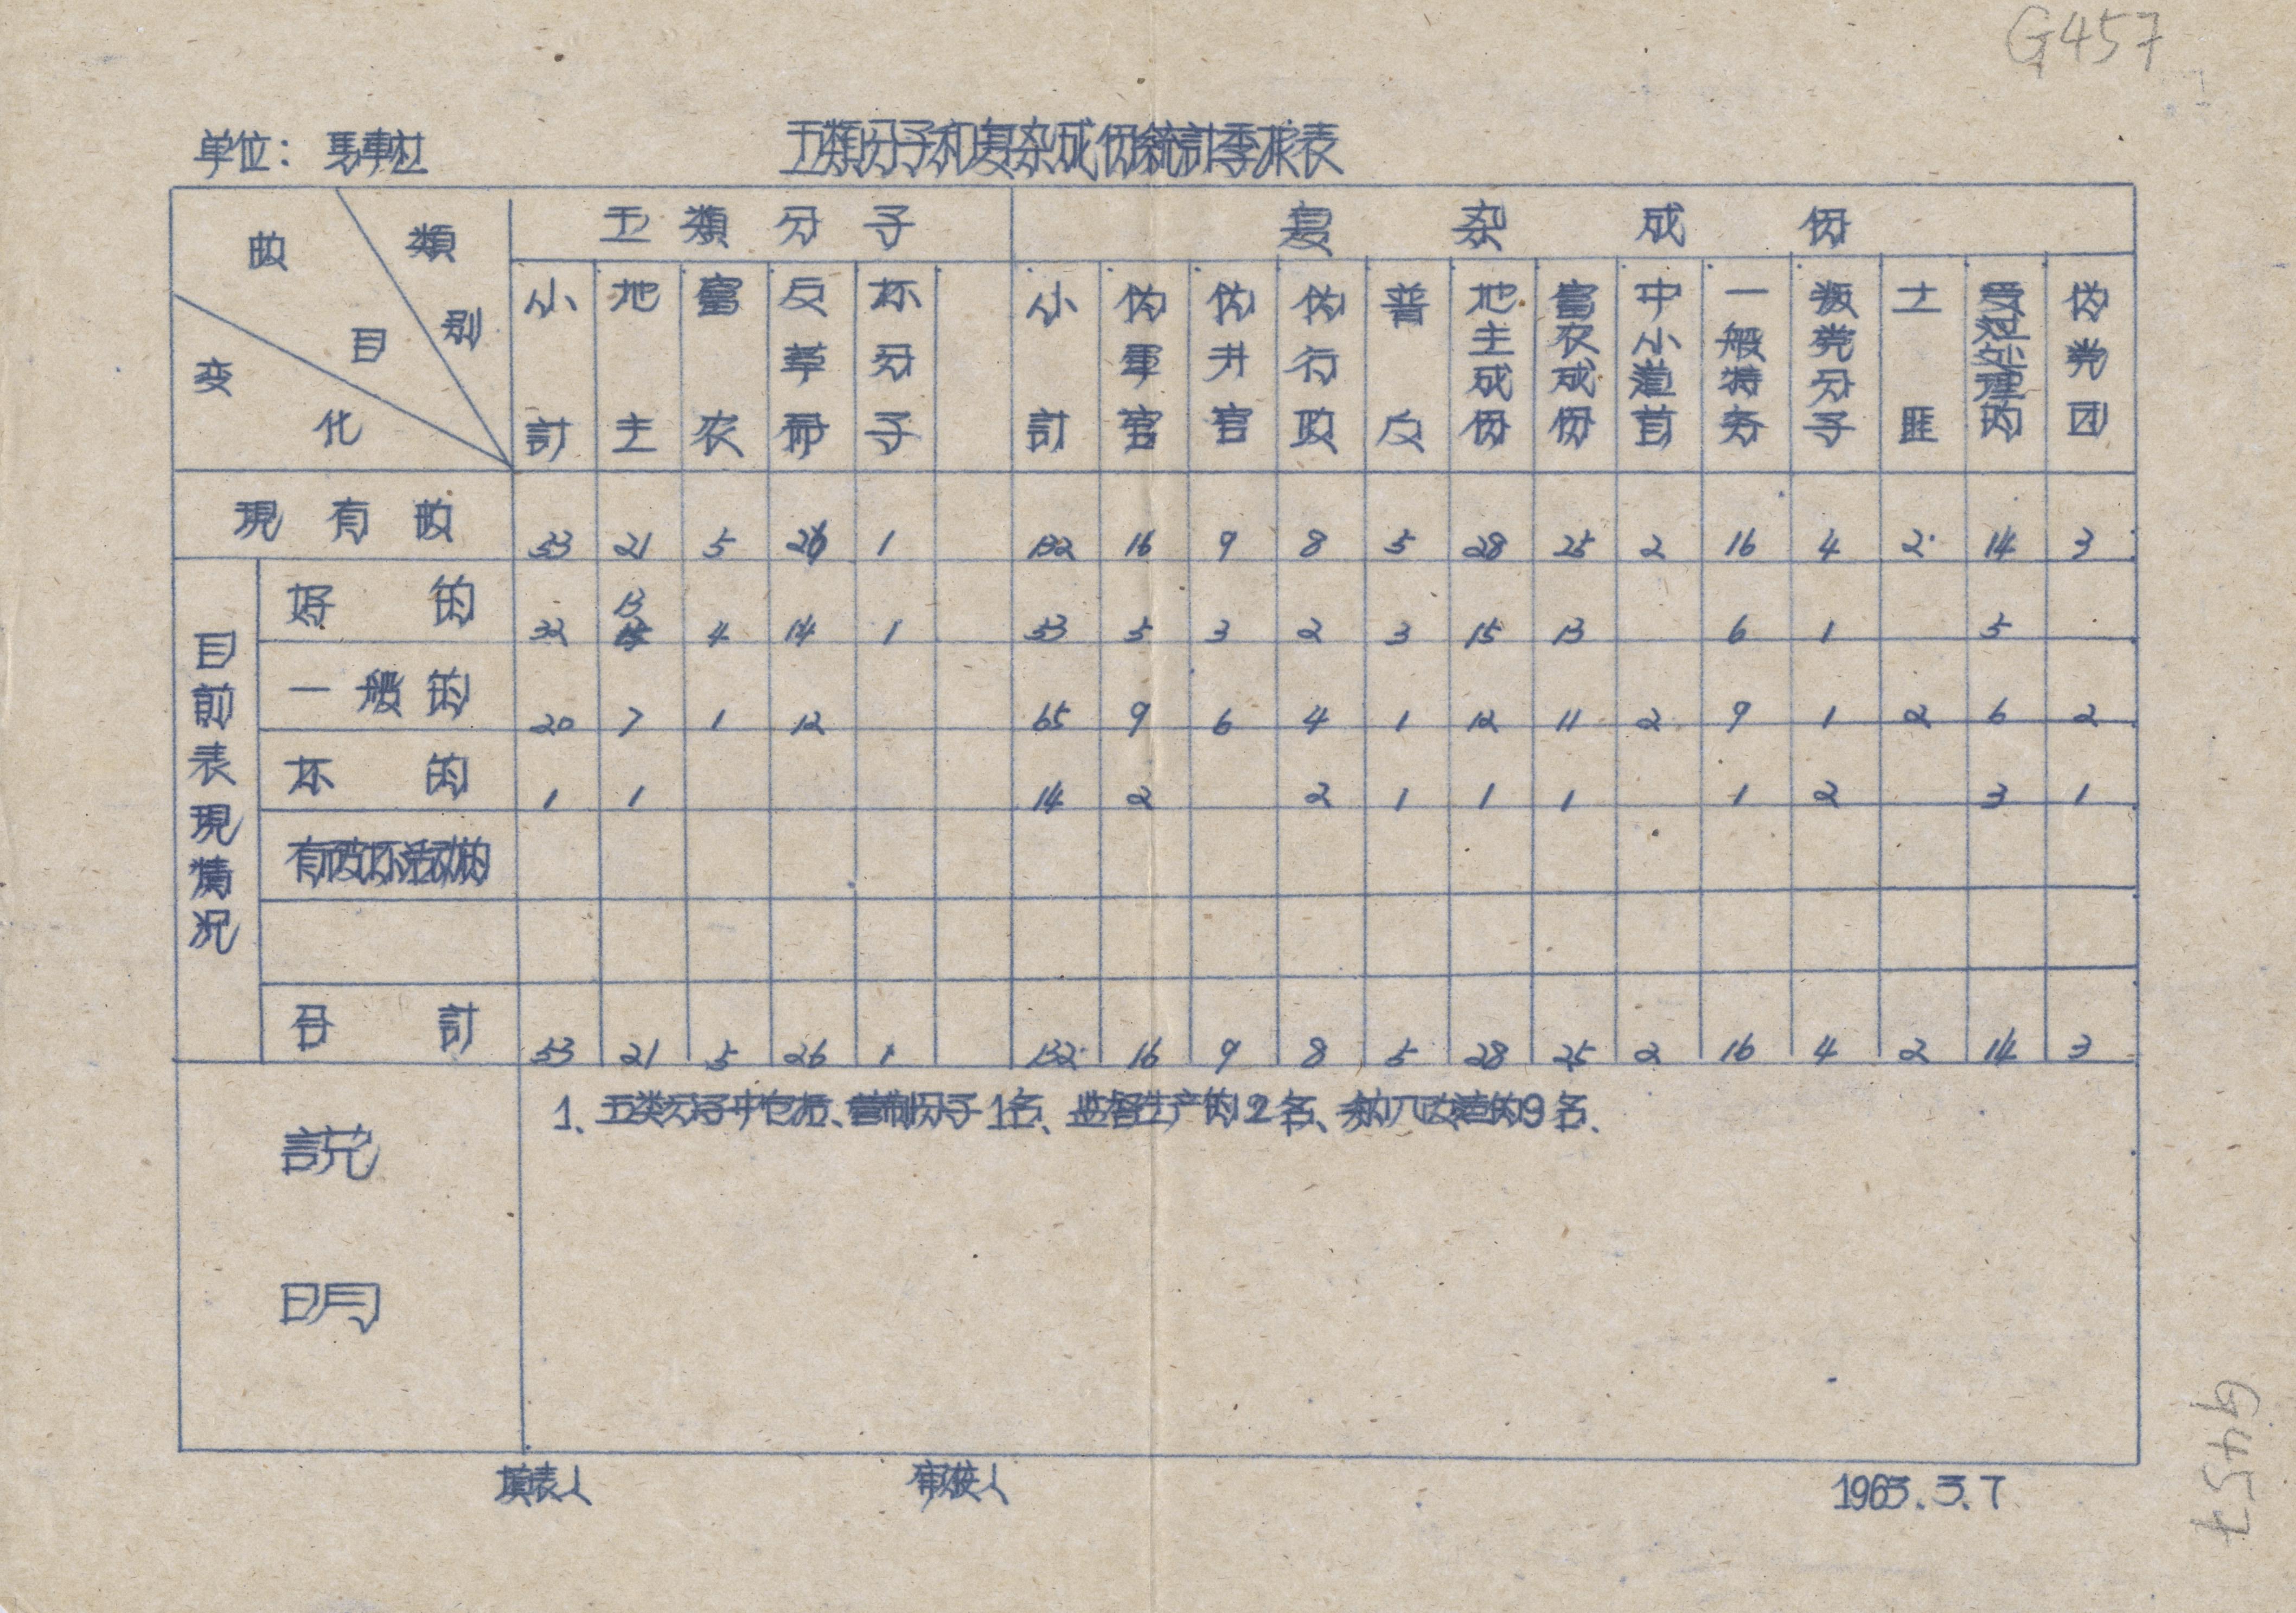 G457
单位：馬車社
五類分子和复杂成份統計季报表
数目 類别 变化
五類分子 复杂成份
小計 地主 富农 反革命 坏分子 小計 伪軍官 伪井官 伪行政 普反 地主成份 富农成份 中小道首 一般特务 叛党分子 土匪 伪党团
現有数 53 21 5 26 1 132 16 9 8 5 28 25 2 16 4 2 14 3
目前表現情况
13
好的 32 4 14 1 53 5 3 2 3 15 13 6 1 5
一般的 20 7 1 12 65 9 6 4 1 12 11 2 9 1 2 6 2
坏的 1 1 14 2 2 1 1 1 1 2 3 1
有破坏活动的
合計 53 21 5 26 1 132 16 9 8 5 28 25 2 16 4 2 14 3
説明
1、五类分子中包括、管制分子1名、监督生产的12名、改造的9名.
填表人 审核人 1963.3.7
G457